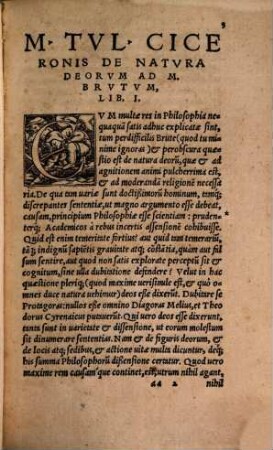 M. TVL. CICE
RONIS DE NATVRA
DEORVM AD M.
BRVTVM,
LIB. I.
CVM multæ res in Philosophia ne
quaquā satis adhuc explicatæ sint,
tum perdifficilis Brute (quod tu mi
nime ignoras) & perobscura quæ
stio est de natura deorū, quæ & ad
agnitionem animi pulcherrima est,
& ad moderandā religionē necessa
ria. De qua tam uariæ sunt doctissimorū hominum, tamq;
discrepantes sententiæ, ut magno argumento esse debeat,
causam, principium Philosophiæ esse scientiam: pruden-
terq; Academicos à rebus incertis assensionē cohibuisse.
Quid est enim temeritate fortius? aut quid tam temerariū,
tāq; indignū sapiētis grauitate atq; cōstātia, quàm aut fal
sum sentire, aut quod non satis explorate perceptū sit &
cognitum, sine ulla dubitatione defendere? Velut in hac
quæstione pleriq; (quod maxime uerisimile est, & quò o-
mnes duce natura uehimur) deos esse dixerūt. Dubitare se
Protagoras: nullos esse omnino Diagoras Melius, et Theo
dorus Cyrenaicus putauerūt. Qui uero deos esse dixerunt,
tanta sunt in uarietate & dissensione, ut eorum molestum
sit dinumerare sententias. Nam & de figuris deorum, &
de locis atq; sedibus, & actione uitæ multa dicuntur, deq;
his summa Philosophorū dissensione certatur. Quod uero
maxime rem causamq; continet, est, utrum nihil agant,
aa 2 nihil